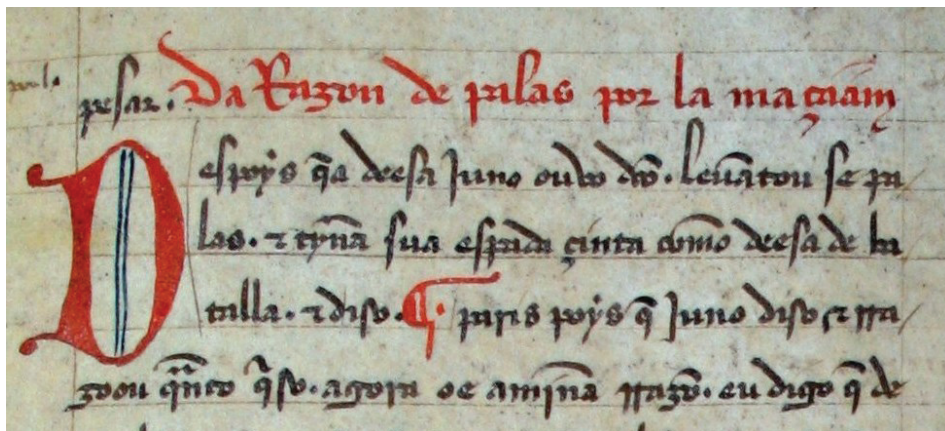 pesar. Da Razon de palas por la maçãam
Despoys q̃e deesa Juno ouvo dc̃o. levãtou se pa/
las. ⁊ tyn̄a sua espada çinta com̃o deesa de ba
talla. ⁊ diso. ¶ paris poys q̃ Juno diso ⁊ rra/
zoou q̃nto q̃so. agora oe a mĩna rrazõ. eu digo q̃ de